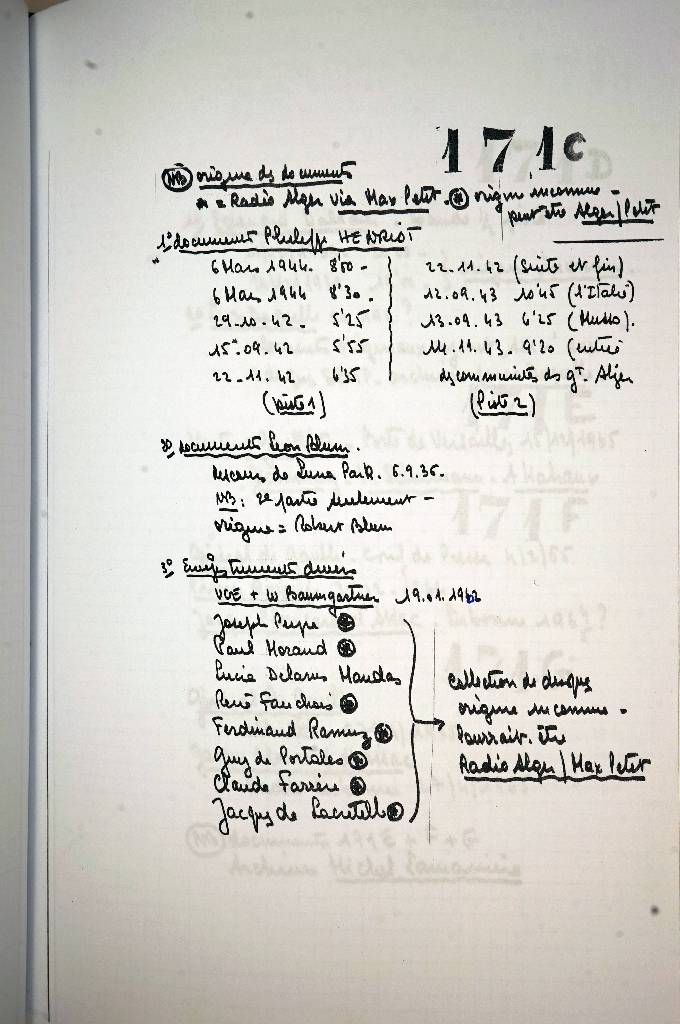 171C
NB origine des documents
* = Radio Alger via Max Petit. ⊛ origine inconnue -
peut être Alger/Petit
1° documents Philippe HENRIOT
6 Mars 1944. 8'00 -
6 Mars 1944 8'30.
29.10.42. 5'25
15.09.42 5'55
22.11.42 6'35
(piste 1)
22.11.42 (Suite et fin)
12.09.43 10'45 (l'Italie)
13.09.43 6'25 (Musso).
14.11.43. 9'20 (entrée
des communistes ds gt. Alger
(Piste 2)
2° documents Leon Blum.
discours de Luna Park. 6.9.36.
NB: 2e partie seulement -
origine = Robert Blum
3° Enregistrements divers
VGE + W Baumgartner 19.01.1962
Joseph Peyre ⊛
Paul Morand ⊛
Lucie Delarue Mardrus
René Fauchois ⊛
Ferdinand Ramuz ⊛
Guy de Portales ⊛
Claude Farrère ⊛
Jacques de Lacretelle ⊛
collection de disques
origine inconnue -
Pourrait être
Radio Alger / Max Petit